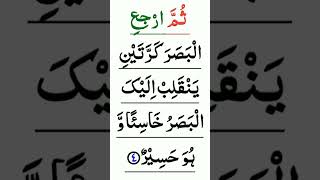 ثُمَّ ارْجِعِ
الْبَصَرَ كَرَّتَيْنِ
يَنْقَلِبْ اِلَيْكَ
الْبَصَرُ خَاسِئًا وَّ
هُوَ حَسِيْرٌ ﴿۴﴾